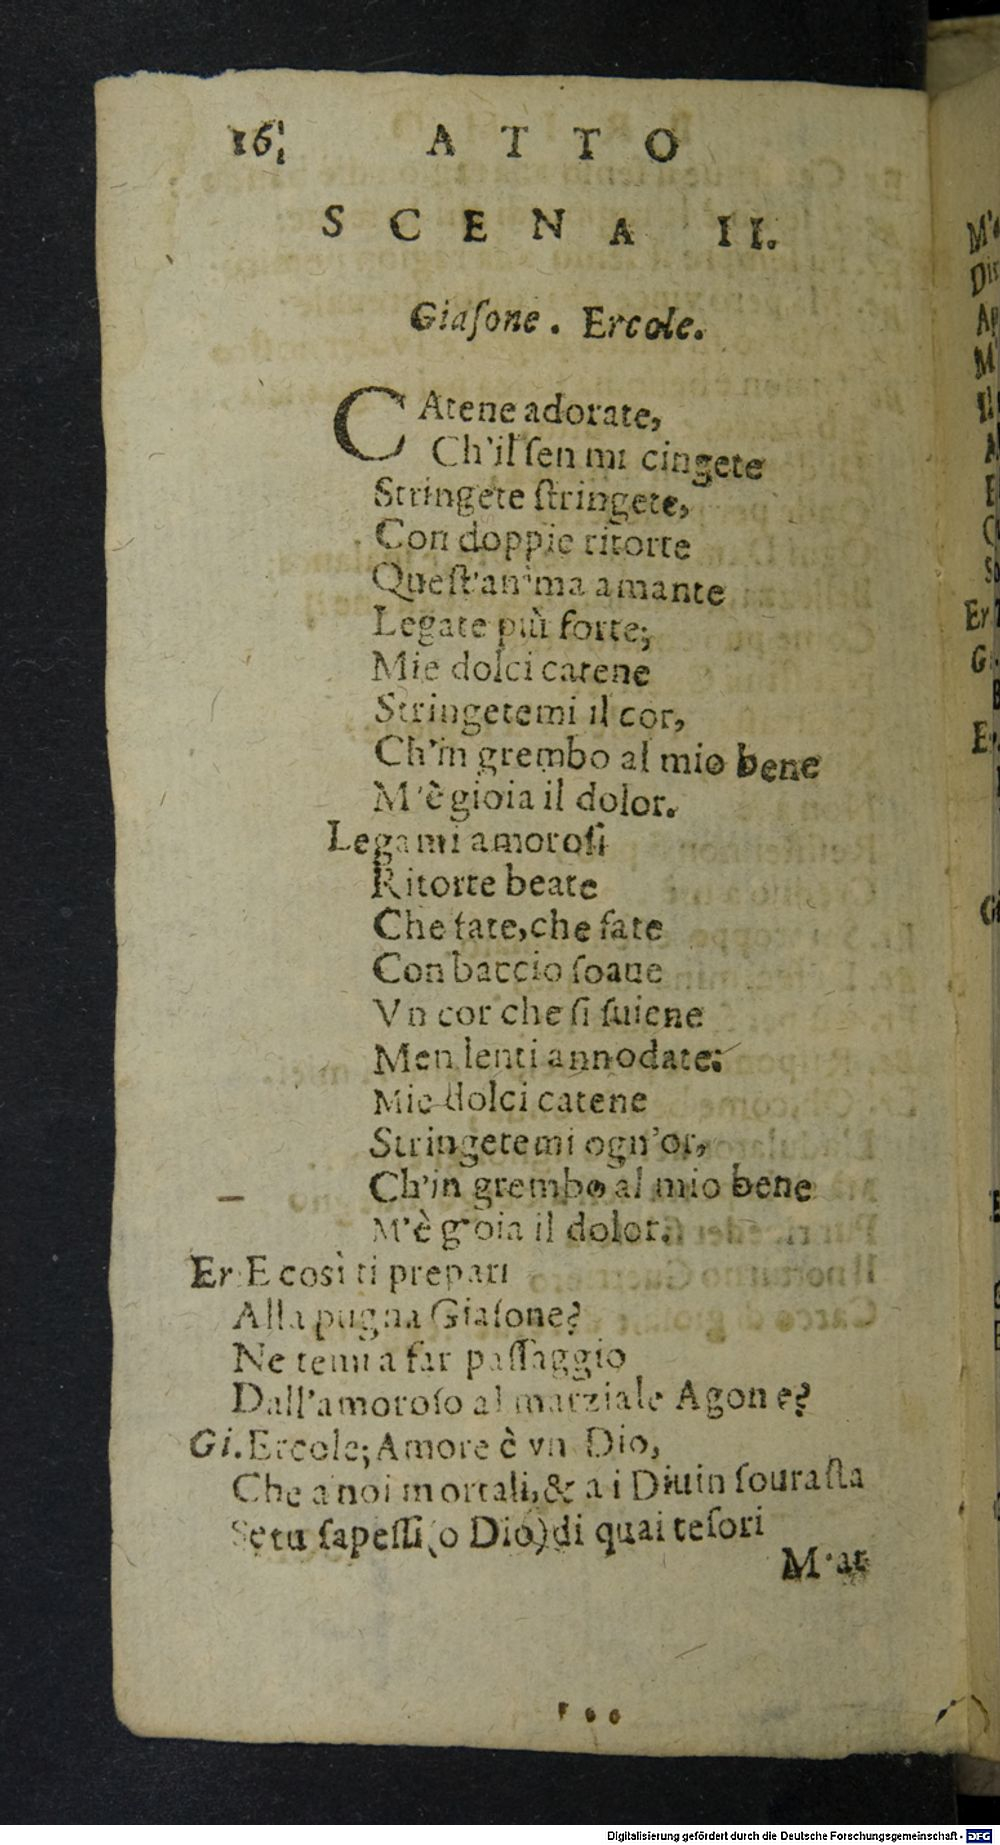 16. ATTO
SCENA II.
Giaſone. Ercole.
CAtene adorate,
Ch'il ſen mi cingete
Stringete ſtringete,
Con doppie ritorte
Queſt'anima amante
Legate più forte;
Mie dolci catene
Stringetemi il cor,
Ch'in grembo al mio bene
M'è gioia il dolor.
Legami amoroſi
Ritorte beate
Che fate, che fate
Con baccio ſoaue
Vn cor che ſi ſuiene
Men lenti annodate:
Mie dolci catene
Stringetemi ogn'or,
Ch'in grembo al mio bene
M'è gioia il dolor.
Er. E così ti prepari
Alla pugna Giaſone?
Ne temi a far paſſaggio
Dall'amoroſo al marziale Agone?
Gi. Ercole; Amore è vn Dio,
Che a noi mortali, & a i Diuin ſouraſta
Se tu ſapeſſi (o Dio) di quai teſori
M'ar
Digitalisierung gefördert durch die Deutsche Forschungsgemeinschaft - DFG